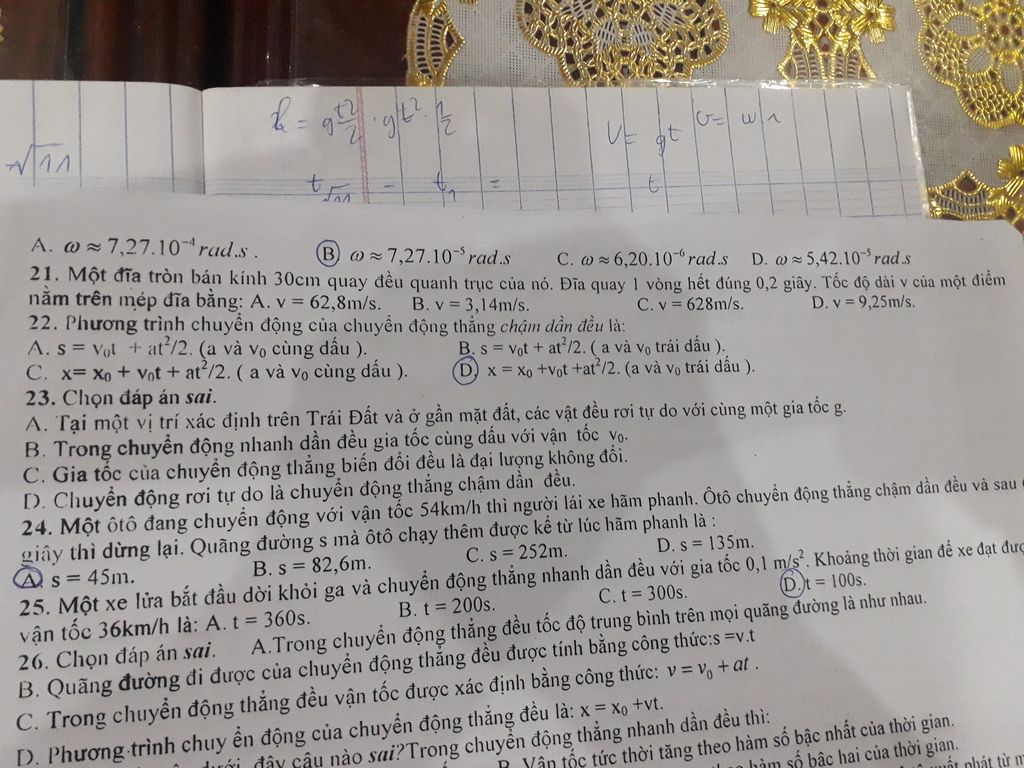 h = g t²/2 · g t² · 1/2
V = gt v = ω r
√11
t√11 = t₁ = t
A. ω ≈ 7,27.10⁻⁴ rad.s . B ω ≈ 7,27.10⁻⁵ rad.s C. ω ≈ 6,20.10⁻⁶ rad.s D. ω ≈ 5,42.10⁻⁵ rad.s
21. Một đĩa tròn bán kính 30cm quay đều quanh trục của nó. Đĩa quay 1 vòng hết đúng 0,2 giây. Tốc độ dài v của một điểm
nằm trên mép đĩa bằng: A. v = 62,8m/s. B. v = 3,14m/s. C. v = 628m/s. D. v = 9,25m/s.
22. Phương trình chuyển động của chuyển động thẳng chậm dần đều là:
A. s = v₀t + at²/2. (a và v₀ cùng dấu ). B. s = v₀t + at²/2. ( a và v₀ trái dấu ).
C. x= x₀ + v₀t + at²/2. ( a và v₀ cùng dấu ). D x = x₀ +v₀t +at²/2. (a và v₀ trái dấu ).
23. Chọn đáp án sai.
A. Tại một vị trí xác định trên Trái Đất và ở gần mặt đất, các vật đều rơi tự do với cùng một gia tốc g.
B. Trong chuyển động nhanh dần đều gia tốc cùng dấu với vận tốc v₀.
C. Gia tốc của chuyển động thẳng biến đổi đều là đại lượng không đổi.
D. Chuyển động rơi tự do là chuyển động thẳng chậm dần đều.
24. Một ôtô đang chuyển động với vận tốc 54km/h thì người lái xe hãm phanh. Ôtô chuyển động thẳng chậm dần đều và sau
giây thì dừng lại. Quãng đường s mà ôtô chạy thêm được kể từ lúc hãm phanh là :
A s = 45m. B. s = 82,6m. C. s = 252m. D. s = 135m.
25. Một xe lửa bắt đầu dời khỏi ga và chuyển động thẳng nhanh dần đều với gia tốc 0,1 m/s². Khoảng thời gian để xe đạt được
vận tốc 36km/h là: A. t = 360s. B. t = 200s. C. t = 300s. D. t = 100s.
26. Chọn đáp án sai. A.Trong chuyển động thẳng đều tốc độ trung bình trên mọi quãng đường là như nhau.
B. Quãng đường đi được của chuyển động thẳng đều được tính bằng công thức:s =v.t
C. Trong chuyển động thẳng đều vận tốc được xác định bằng công thức: v = v₀ + at .
D. Phương trình chuyển động của chuyển động thẳng đều là: x = x₀ +vt.
dưới đây câu nào sai?Trong chuyển động thẳng nhanh dần đều thì:
B. Vận tốc tức thời tăng theo hàm số bậc nhất của thời gian.
theo hàm số bậc hai của thời gian.
phát từ